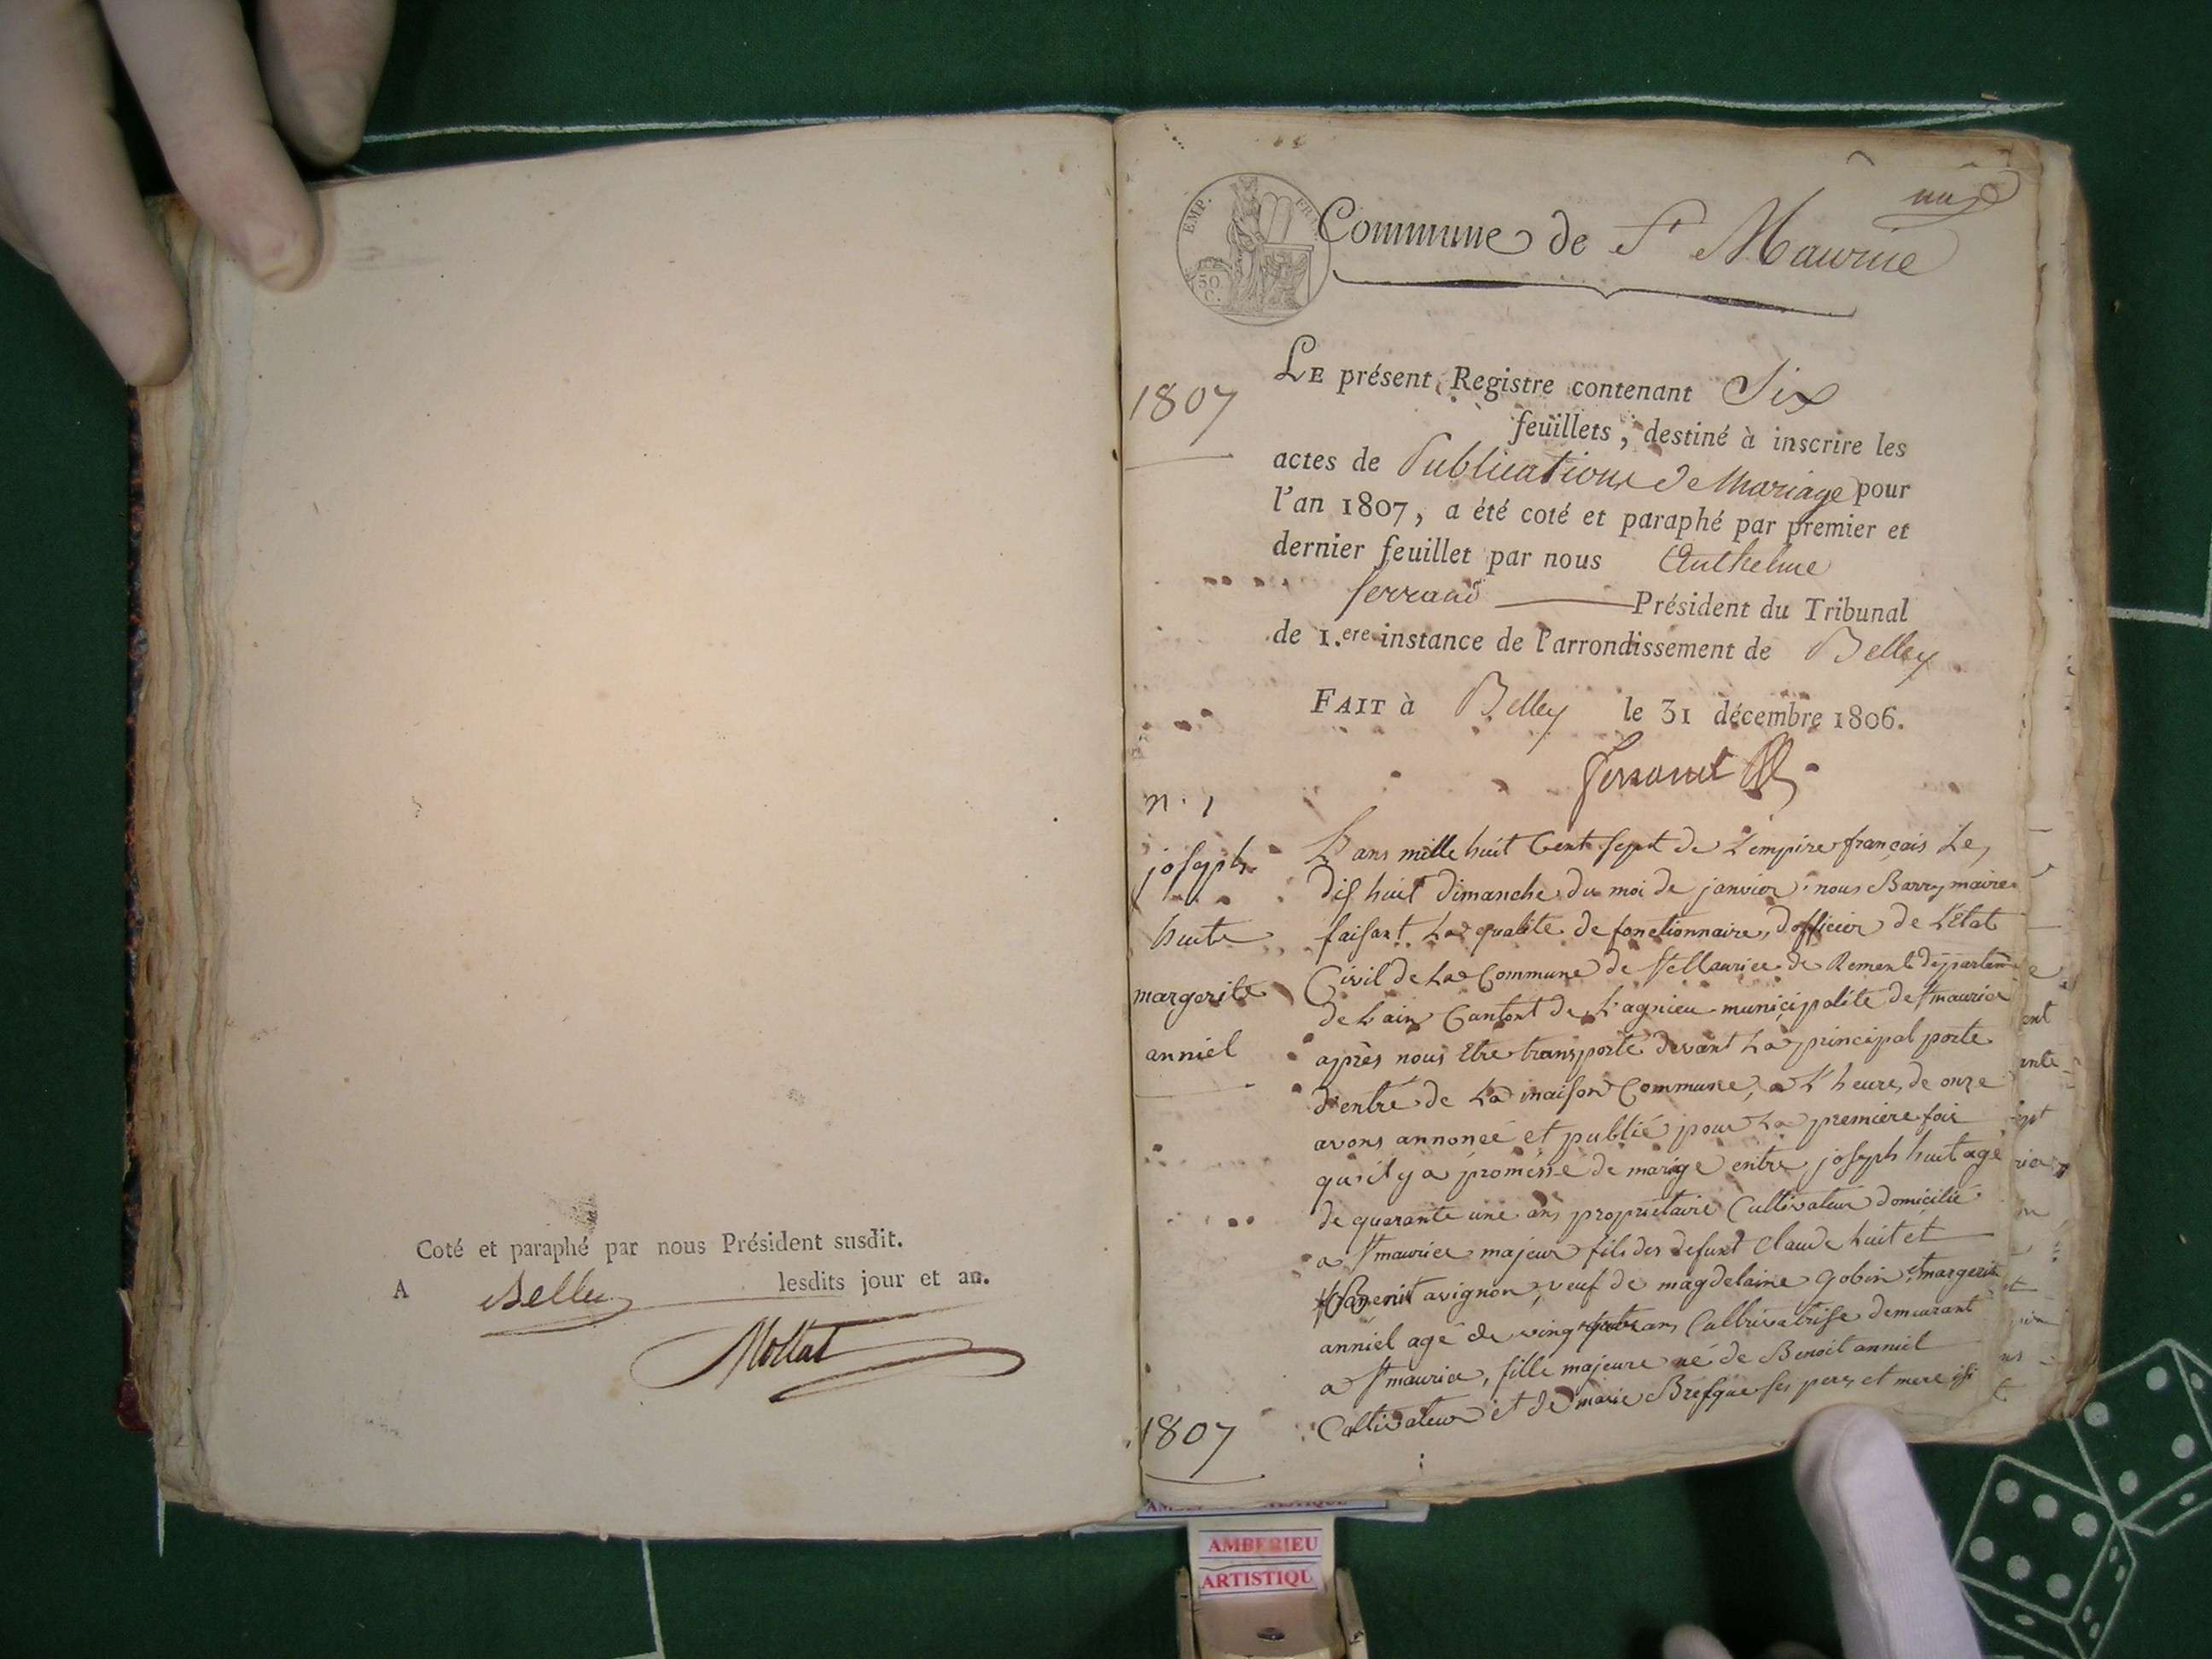 Coté et paraphé par nous Président susdit.
A Belley lesdits jour et an.
Mollat
une
EMP. FRA
50 C.
Commune de St Maurice
1807
LE présent Registre contenant Six
feuillets, destiné à inscrire les
actes de Publications de Mariage pour
l'an 1807, a été coté et paraphé par premier et
dernier feuillet par nous Anthelme
ferrand Président du Tribunal
de 1.ere instance de l'arrondissement de Belley
FAIT à Belley le 31 décembre 1806.
ferrand
n. 1
joseph
huit
margerite
anniel
L'ans mille huit Cent sept de L'empire français Le
dis huit dimanche du moi de janvier nous Barry maire
faisant La qualité de fonctionnaire d'officier de L'Etat
Civil de La Commune de St Maurice de Rement departem
de Lain Cantont de Lagnieu municipalité de st maurice
après nous Etre transporté devant La principal porte
d'entré de La maison Commune, a L'heure de onze
avons annoncé et publié pour La première fois
qu'il y a promesse de marige entre joseph huit agé
de quarante une ans propriétaire Cultivateur domicilié
a st maurice majeur fils des defunt Claude huit et
avignon veuf de magdelaine gobin et margerite
anniel agé de ving ans Cultivatrise demeurant
a st maurice, fille majeure né de Benoit anniel
Cultivateur et de marie Bresque ses pere et mere
1807
AMBERIEU
ARTISTIQU